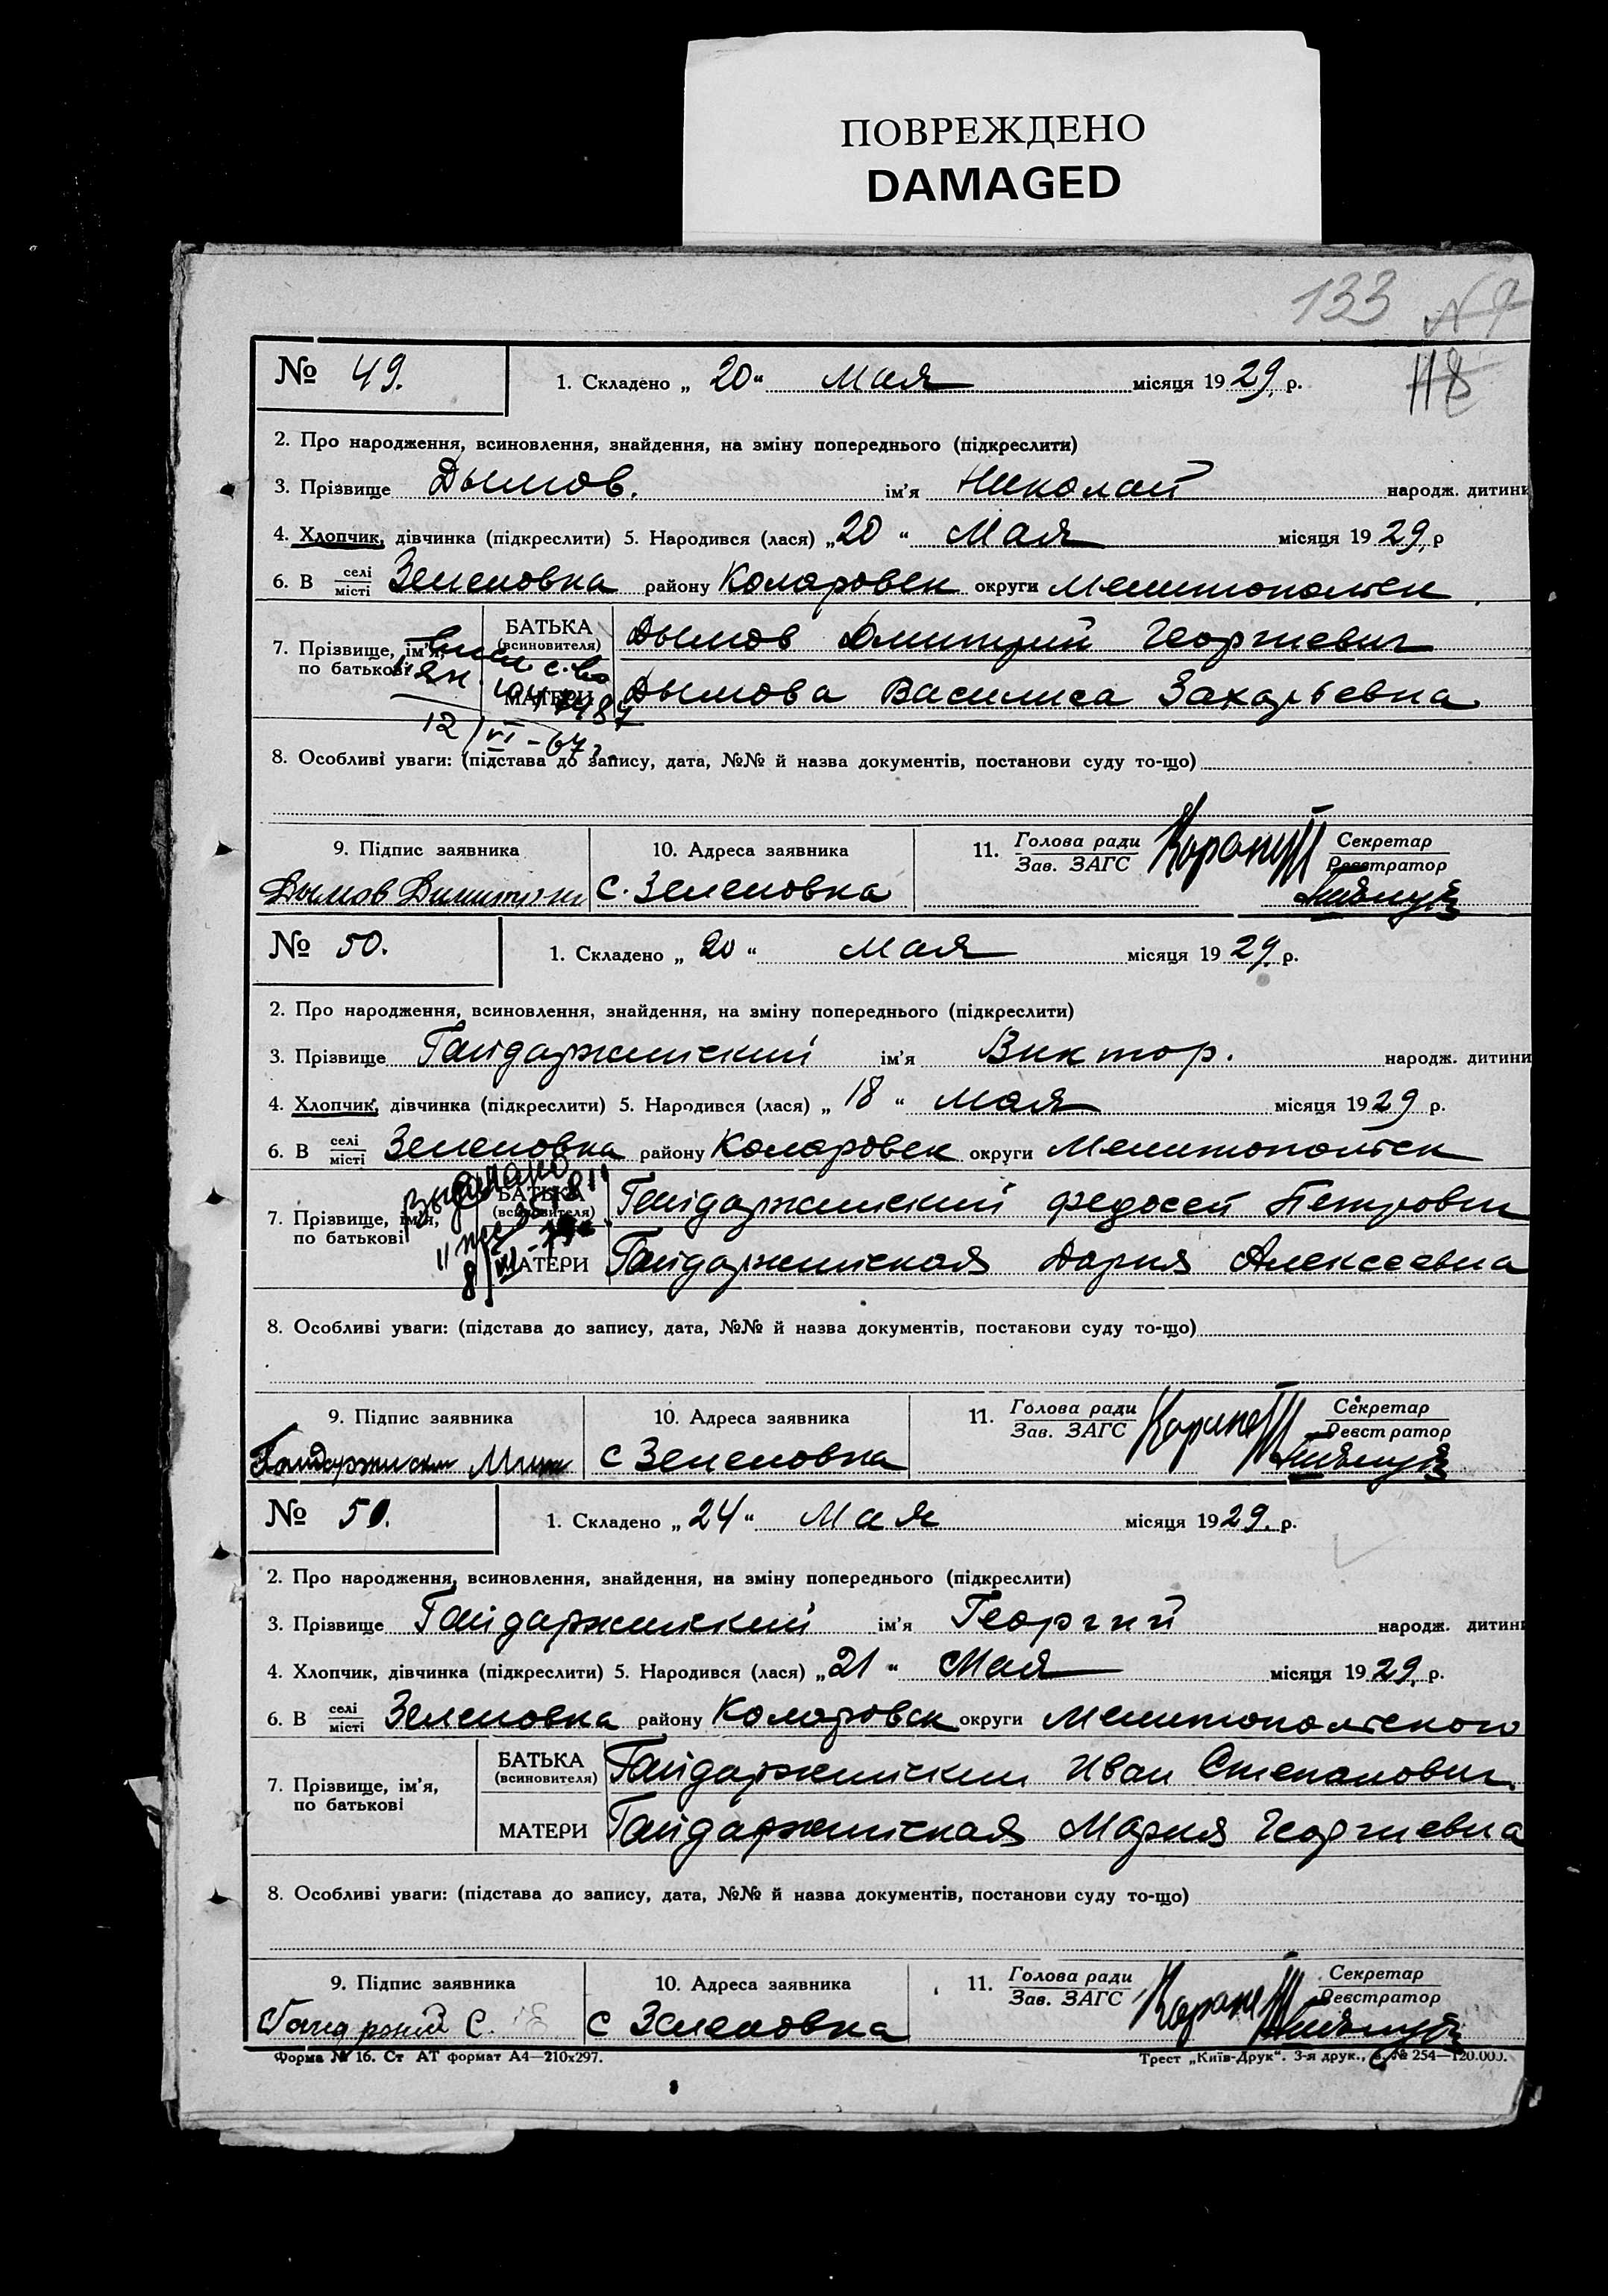 ПОВРЕЖДЕНО
DAMAGED
133 N 9
118
№ 49. 1. Складено „ 20 “ Мая місяця 19 29, р.
2. Про народження, всиновлення, знайдення, на зміну попереднього (підкреслити)
3. Прізвище Дымов. ім'я Николай народж. дитини
4. Хлопчик, дівчинка (підкреслити) 5. Народився (лася) „ 20 “ Мая місяця 19 29, р
6. В селі/місті Зеленовка району Коларовск округи Мелитопольск
7. Прізвище, ім'я, по батькові БАТЬКА (всиновителя) Дымов Дмитрий Георгиевич
МАТЕРИ Дымова Василиса Захарьевна
12/VI-67
8. Особливі уваги: (підстава до запису, дата, №№ й назва документів, постанови суду то-що)
9. Підпис заявника 10. Адреса заявника 11. Голова ради/Зав. ЗАГС Секретар/Реєстратор
Дымов Димитрий с. Зеленовка
№ 50. 1. Складено „ 20 “ Мая місяця 19 29, р.
2. Про народження, всиновлення, знайдення, на зміну попереднього (підкреслити)
3. Прізвище Гайдаржийский ім'я Виктор. народж. дитини
4. Хлопчик, дівчинка (підкреслити) 5. Народився (лася) „ 18 “ Мая місяця 19 29 р.
6. В селі/місті Зеленовка району Коларовск округи Мелитопольск
7. Прізвище, ім'я, по батькові БАТЬКА (всиновителя) Гайдаржийский Федосей Петрович
МАТЕРИ Гайдаржийская Дария Алексеевна
8. Особливі уваги: (підстава до запису, дата, №№ й назва документів, постанови суду то-що)
9. Підпис заявника 10. Адреса заявника 11. Голова ради/Зав. ЗАГС Секретар/Реєстратор
с Зеленовка
№ 51. 1. Складено „ 24 “ Мая місяця 19 29, р.
2. Про народження, всиновлення, знайдення, на зміну попереднього (підкреслити)
3. Прізвище Гайдаржийский ім'я Георгий народж. дитини
4. Хлопчик, дівчинка (підкреслити) 5. Народився (лася) „ 21 “ Мая місяця 19 29, р.
6. В селі/місті Зеленовка району Коларовск округи Мелитопольского
7. Прізвище, ім'я, по батькові БАТЬКА (всиновителя) Гайдаржийский Иван Степанович.
МАТЕРИ Гайдаржийская Мария Георгиевна
8. Особливі уваги: (підстава до запису, дата, №№ й назва документів, постанови суду то-що)
9. Підпис заявника 10. Адреса заявника 11. Голова ради/Зав. ЗАГС Секретар/Реєстратор
с Зеленовка
Форма № 16. Ст АТ формат А4—210х297. Трест „Київ-Друк“. 3-я друк., № 254—120.000.